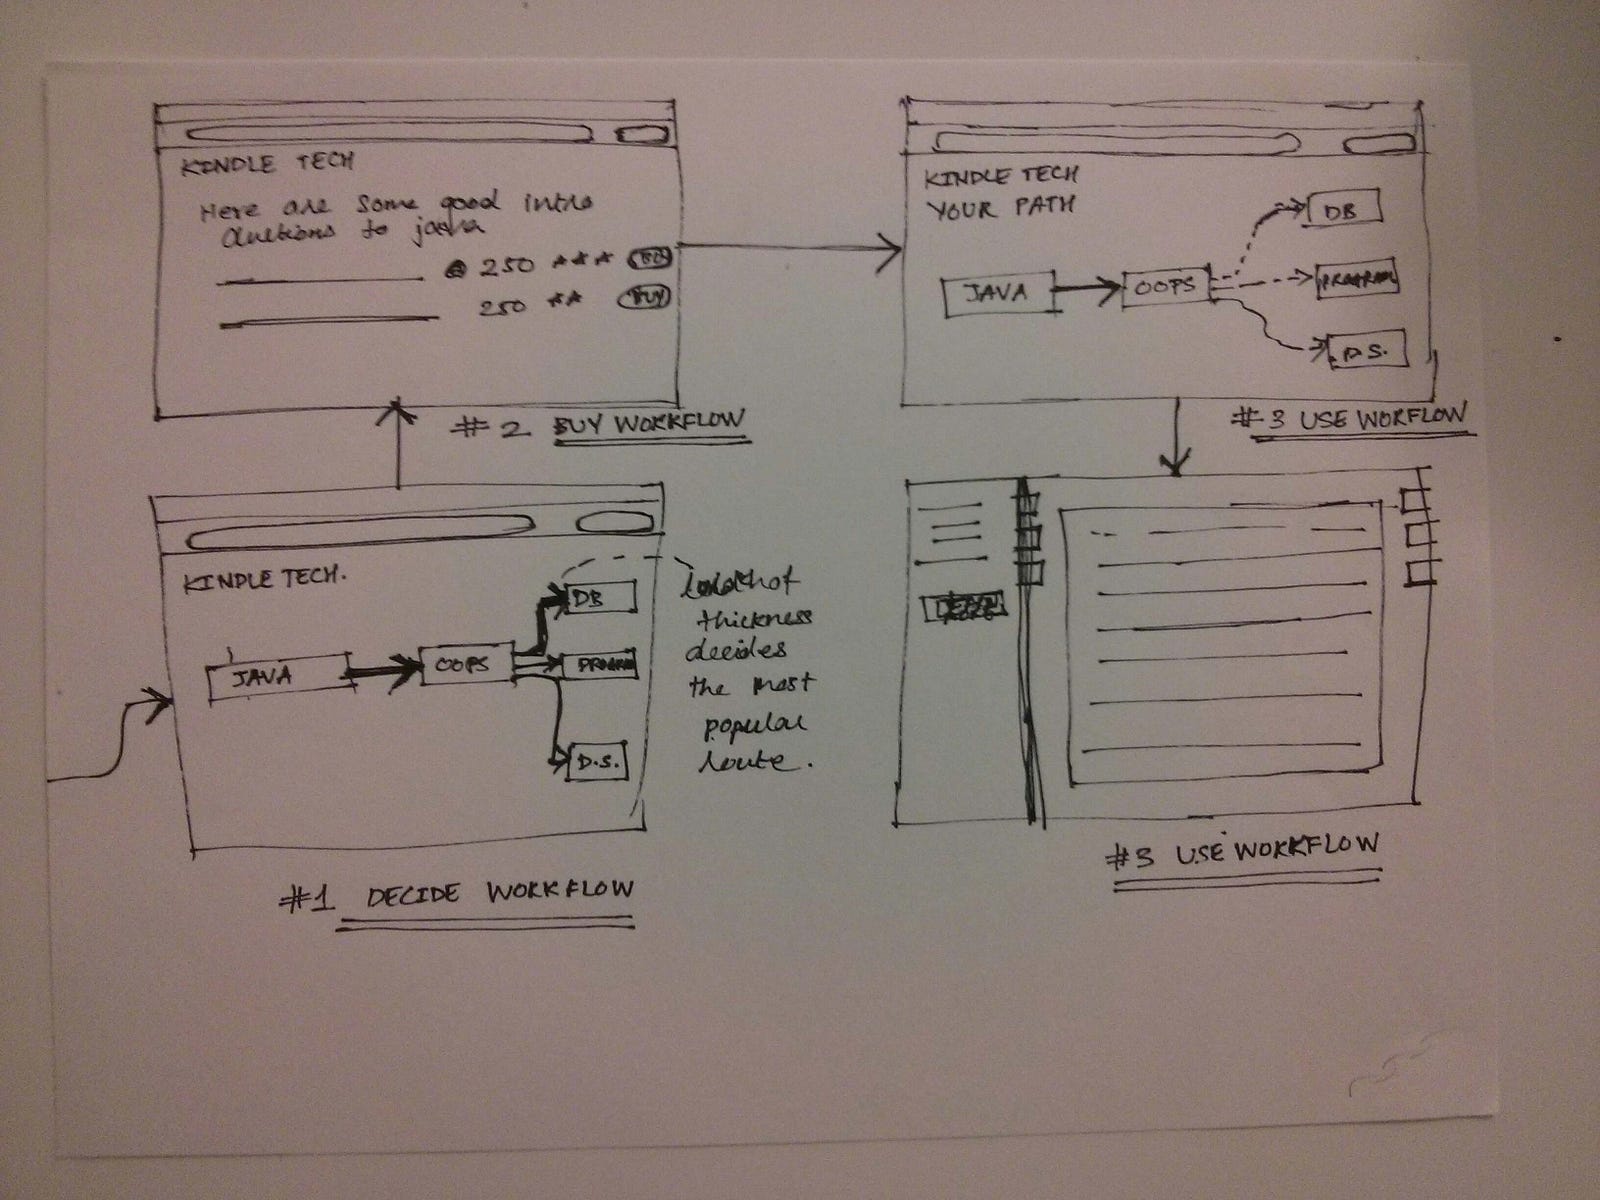 KINDLE TECH
Here are some good intro
ductions to java
250 *** BUY
250 ** BUY
#2 BUY WORKFLOW
KINDLE TECH
YOUR PATH
JAVA
OOPS
DB
PROGRAM
D.S.
#3 USE WORFLOW
KINDLE TECH.
JAVA
OOPS
DB
PROGRAM
D.S.
thickness
decides
the most
popular
route.
#1 DECIDE WORKFLOW
#3 USE WORKFLOW